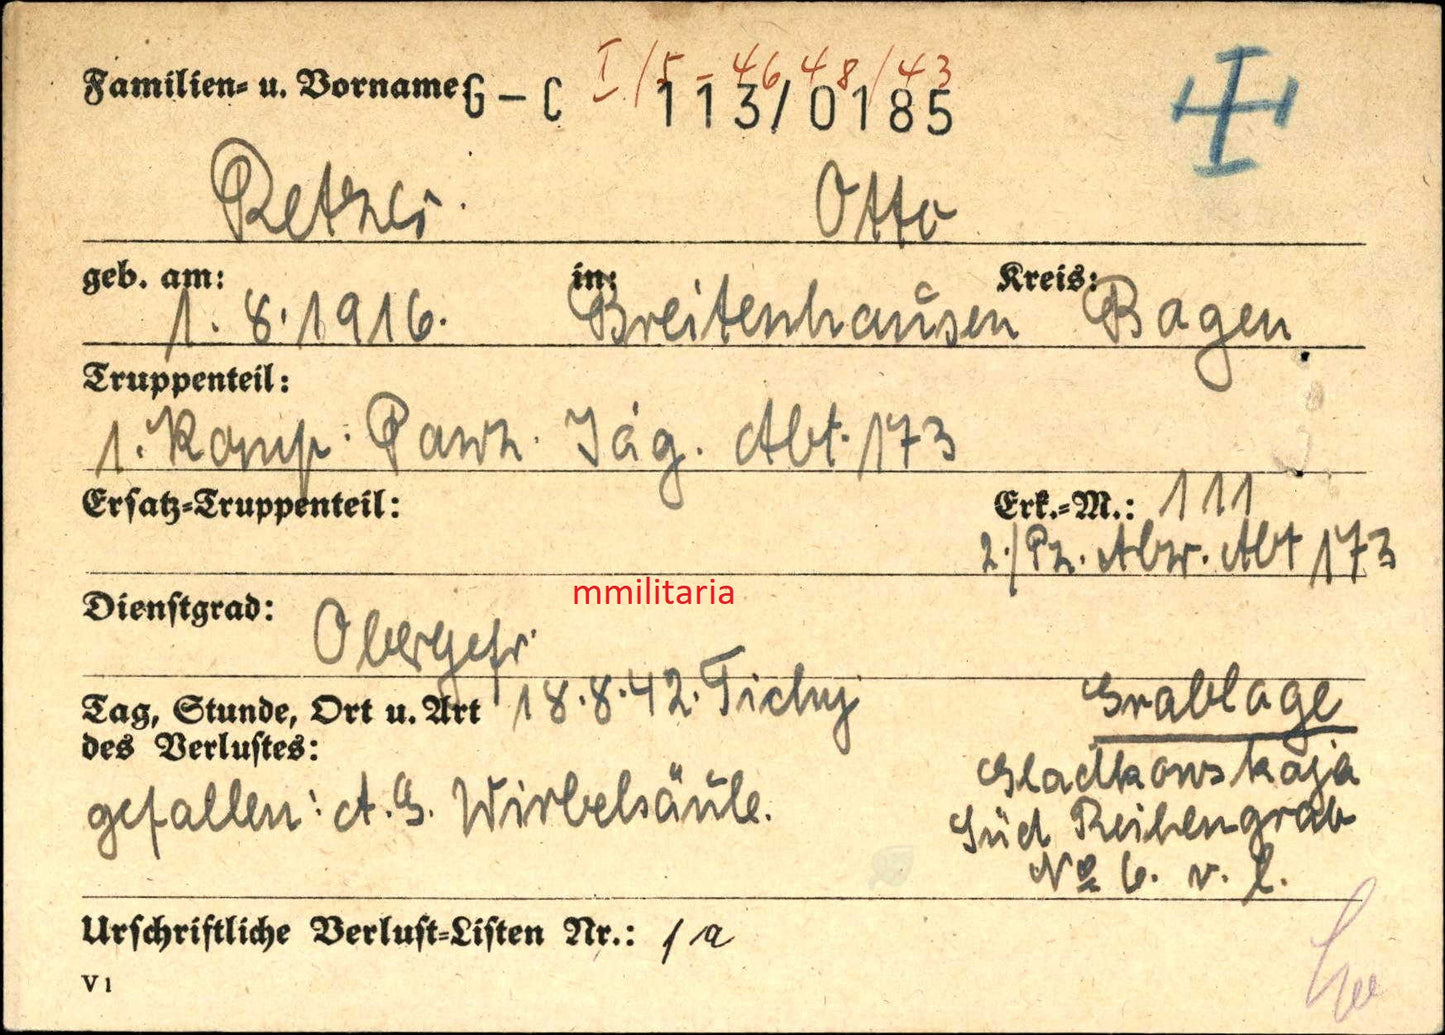 I/5-4648/43
Familien- u. Vorname G-C 113/0185
Otto
geb. am: in: Kreis:
1.8.1916. Breitenhausen Bagen
Truppenteil:
1. Komp. Panz. Jäg. Abt. 173
Ersatz-Truppenteil: Erk.-M.: 111
2./Pz. Abw. Abt 173
mmilitaria
Dienstgrad: Obergefr.
Tag, Stunde, Ort u. Art 18.8.42. Tichij Grablage
des Verlustes: Gladkowskaja
gefallen: A.G. Wirbelsäule. Süd Reihengrab
№ 6. v. l.
Urschriftliche Verlust-Listen Nr.: 1a
V 1